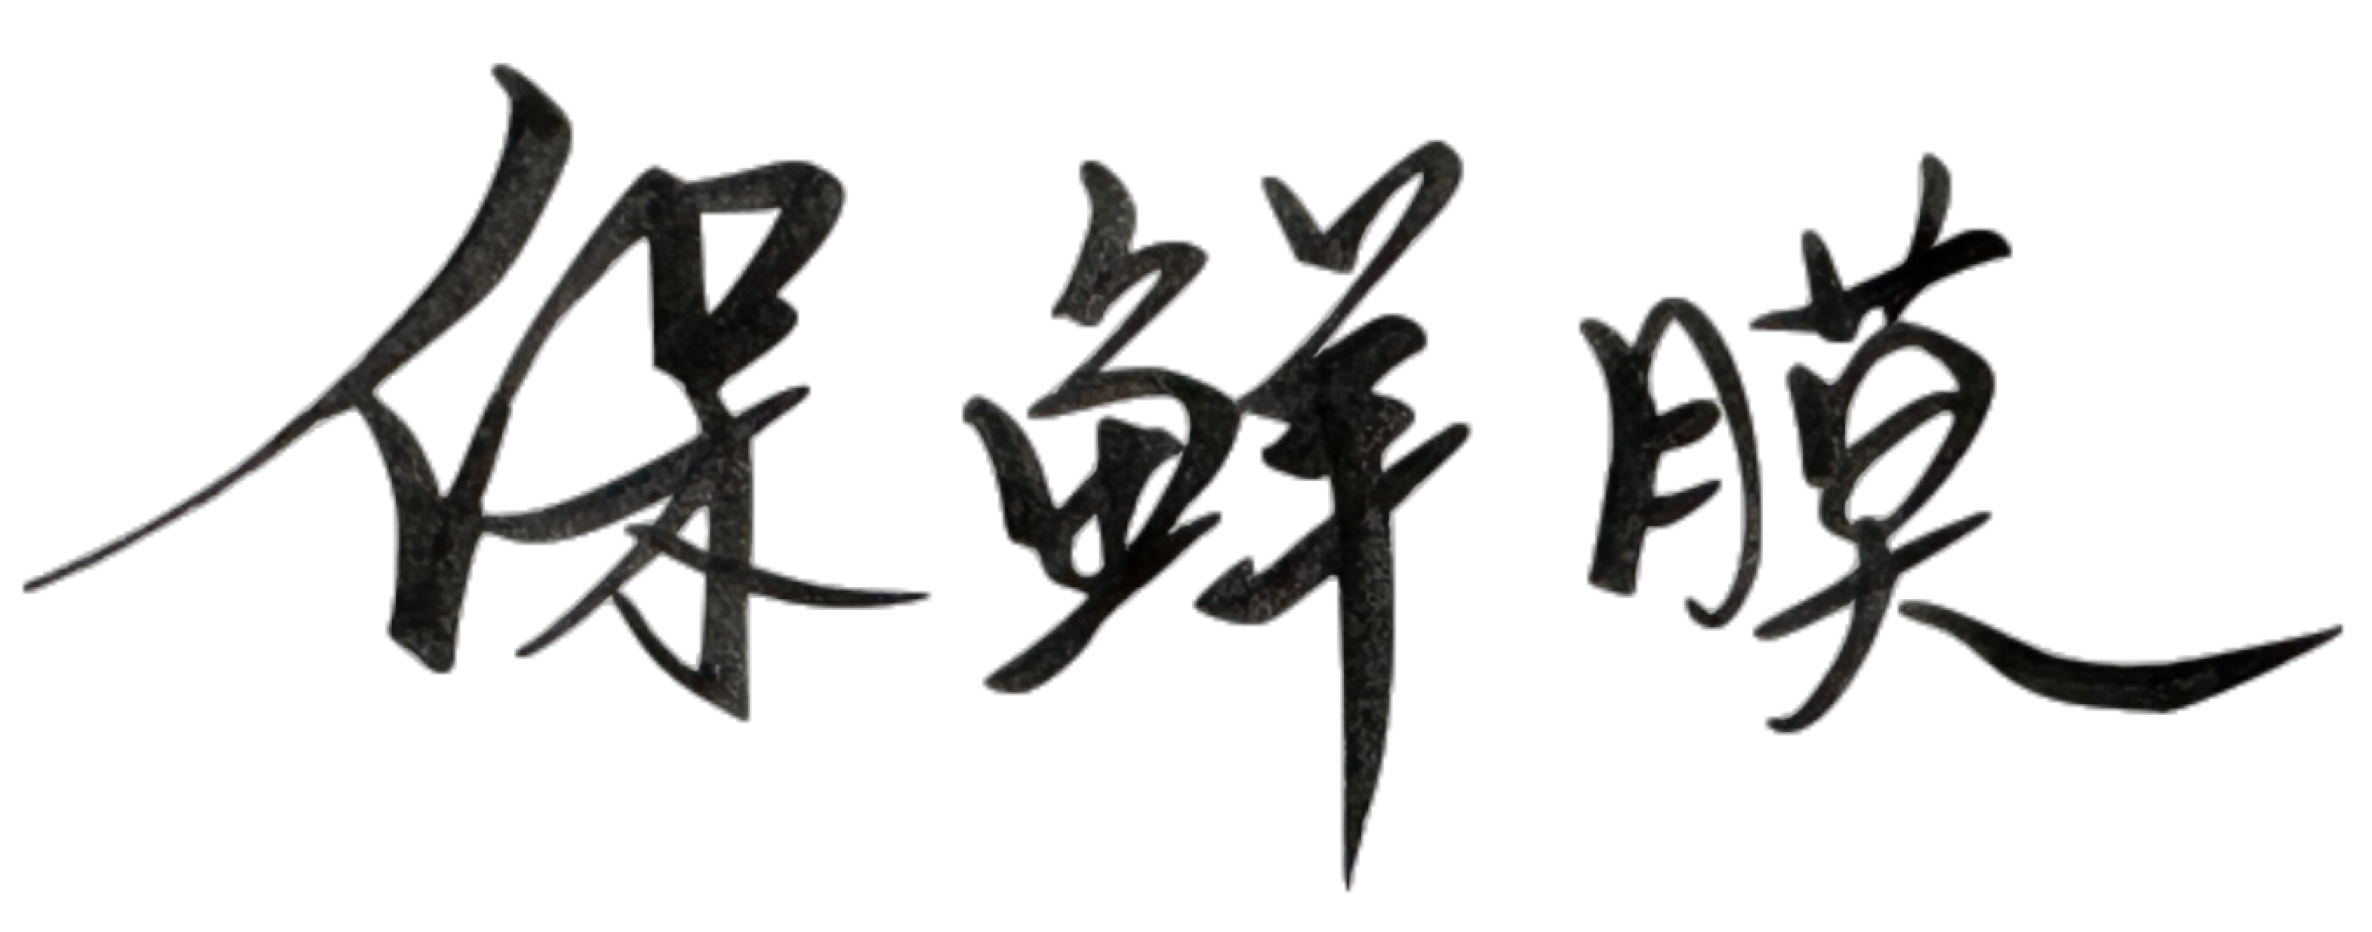 保鲜膜